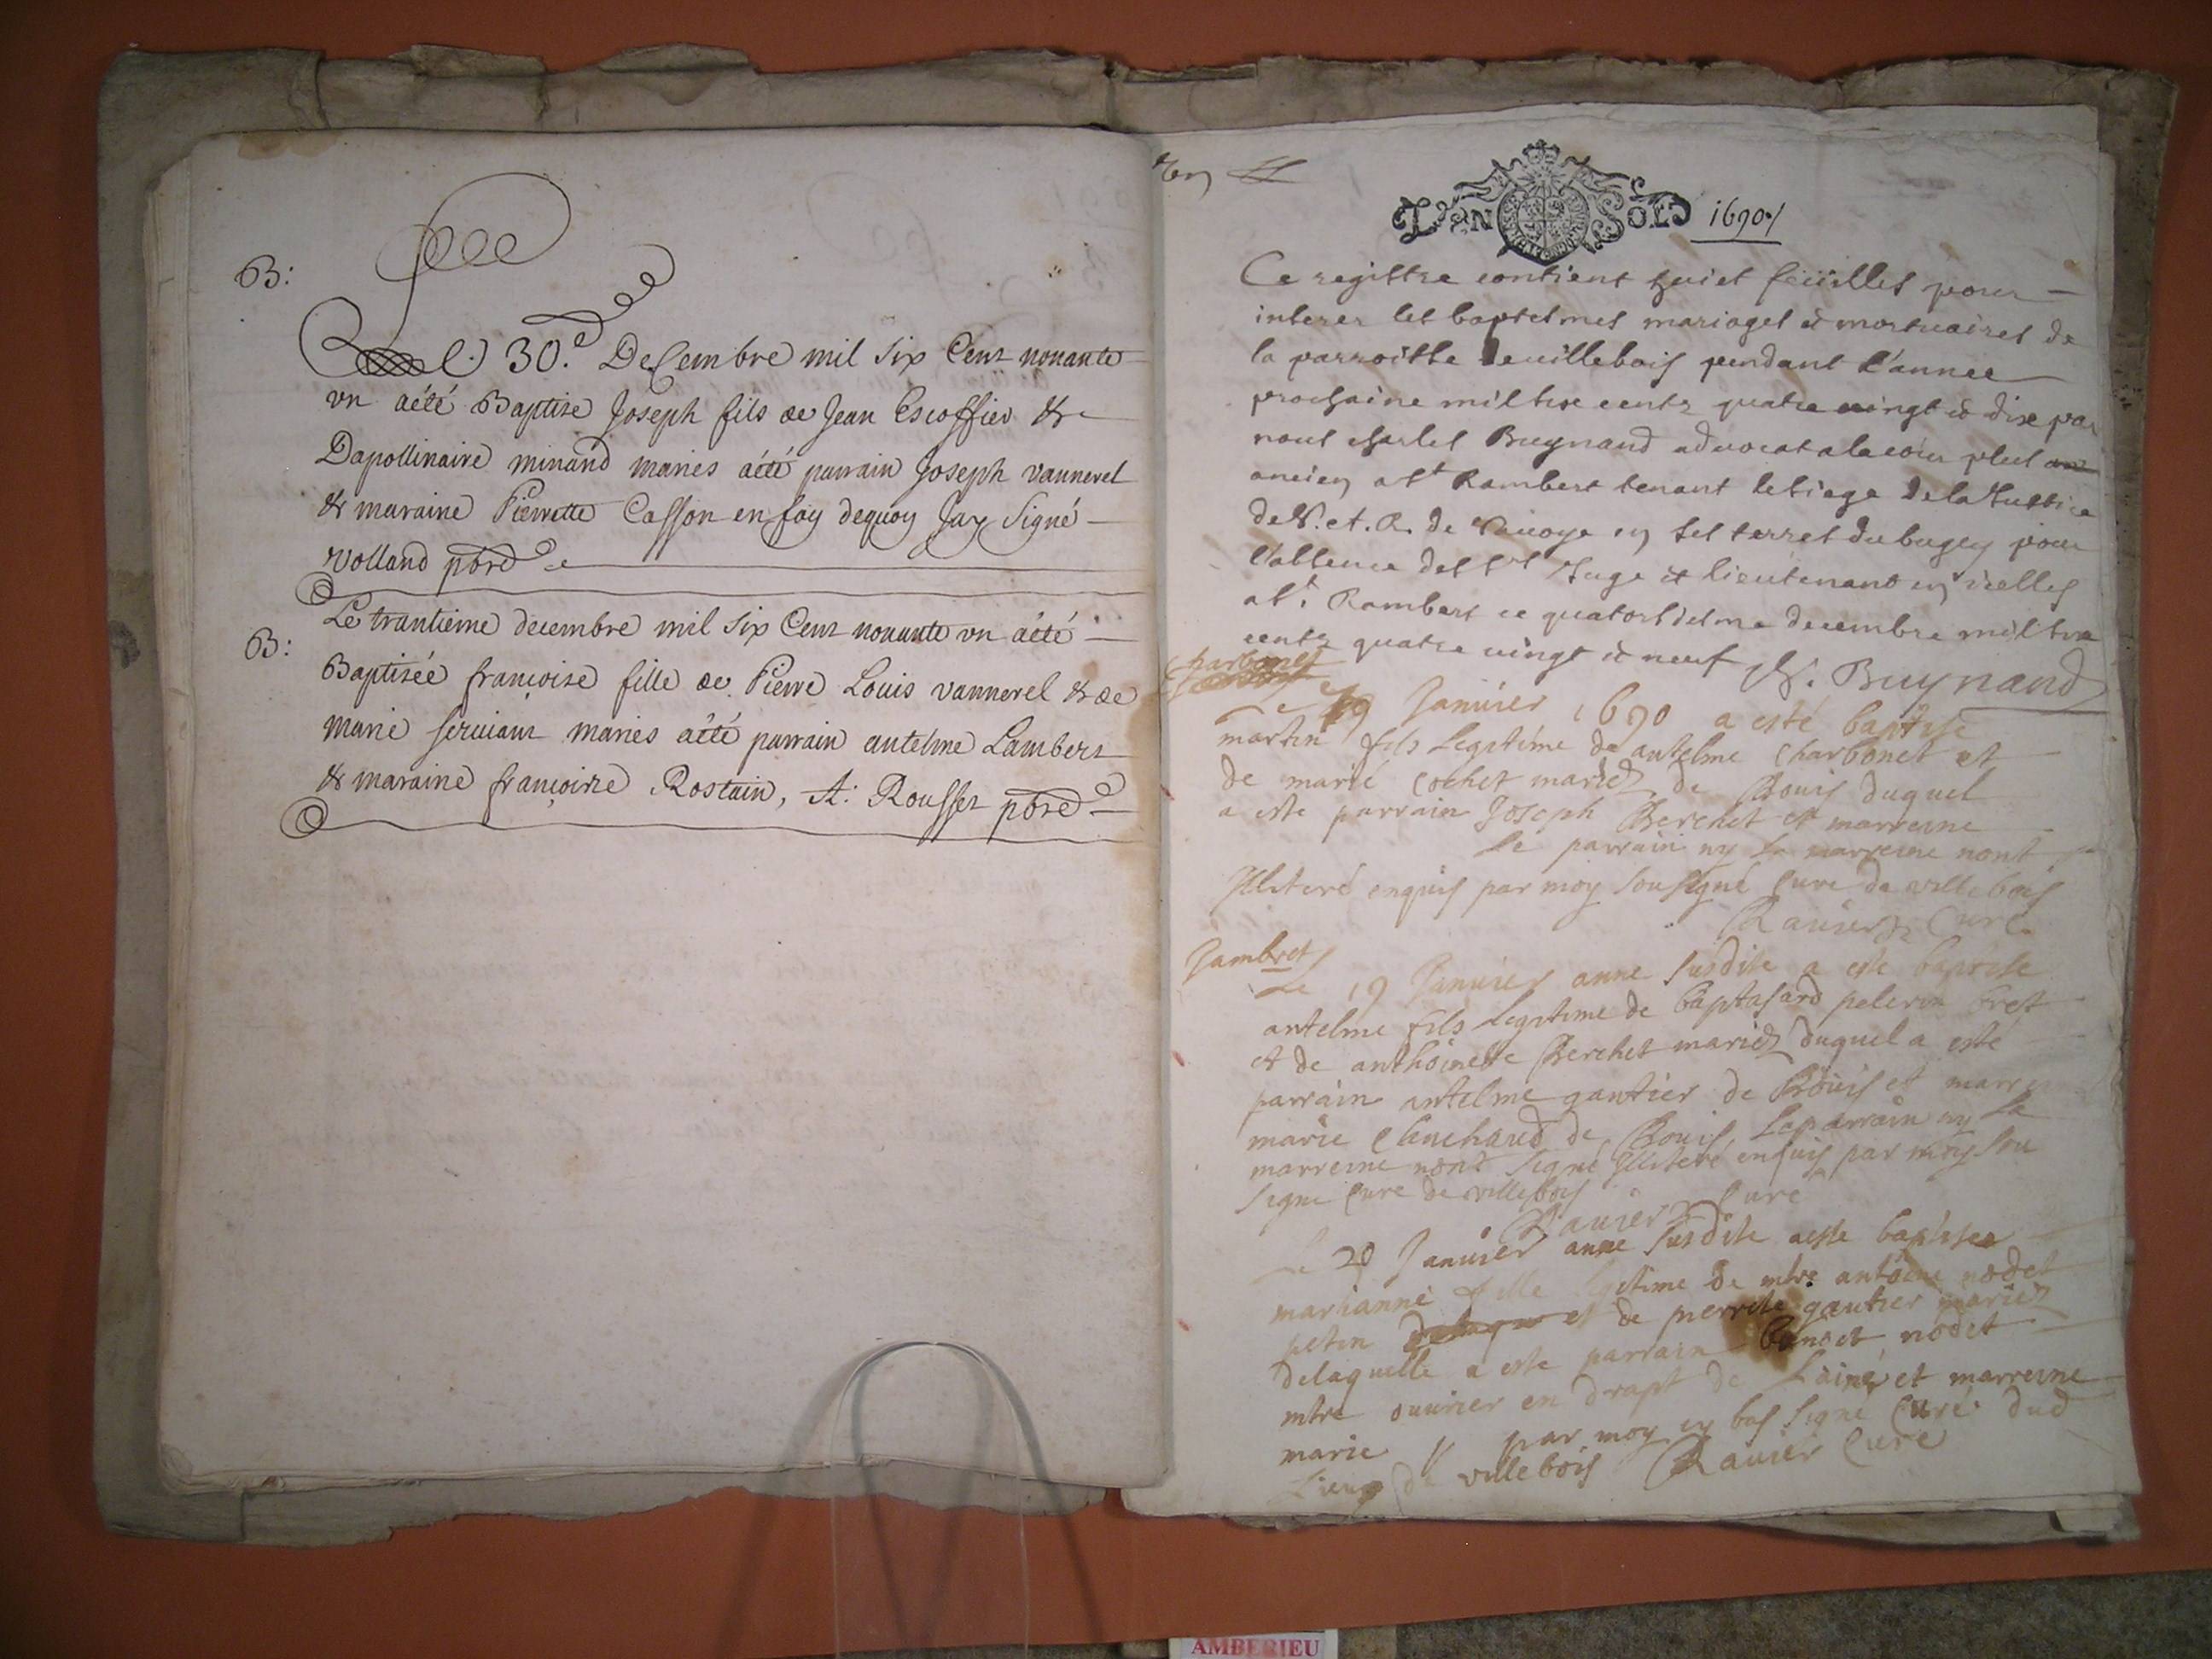 B:
Le 30.e Decembre mil six Cens nonante
vn aété Baptize Joseph fils de Jean Escoffier &
Dapollinaire minand maries aété parrain Joseph vannerel
& maraine Pierrette Casson en foy dequoy Jay Signé
Volland pbre
B:
Le trantieme decembre mil six Cens nonante vn aété
Baptizée françoise fille de Pierre Louis vannerel & de
Marie seruians maries aété parrain antelme Lambers
& maraine françoise Rostain, A: Rousset pbre
L'AN SOL 1690
Ce registre contient huict feüilles pour
inserer les baptesmes mariages & mortuaires de
la parroisse de villebois pendant l'annee
prochaine mil six cents quatre vingt & dix par
nous charles Buynand advocat ala cour plus
ancien a St Rambert tenant le siege de la Justice
de S. A. R. de Sauoye en ses terres du bugey pour
l'absence des Srs Juge et lieutenant en icelles
a St Rambert ce quatorsiesme decembre mil six
cents quatre vingt & neuf Buynand
Charbonet
Le 19 Januier 1690 a esté baptise
martin fils legitime de antelme Charbonet et
de marie Cochet mariez de Bouis duquel
a este parrain Joseph Berchet et marreine
Le parrain ny la marreine nont
Illiteré enquis par moy sousigné Cure de villebois
Rauier Cure
Jambret
Le 19 Januier anne susdite a este baptise
antelme fils legitime de baptasard pelerin bret
et de anthoinette Berchet mariez duquel a este
parrain antelme gautier de Bouis et marreine
marie Clanchard de Bouis, Le parrain ny la
marreine nont signé Illiteré enquis par moy sou
signe Cure de villebois
Rauier Cure
Le 20 Januier anne susdite a este baptisee
marianne fille legitime de mtre antoine nodet
petin et de pierrete gautier mariez
delaquelle a este parrain benoit nodet
mtre ouurier en drapt de Laine et marreine
marie par moy en bas signé Curé dud
Lieux de villebois Rauier Cure
AMBERIEU